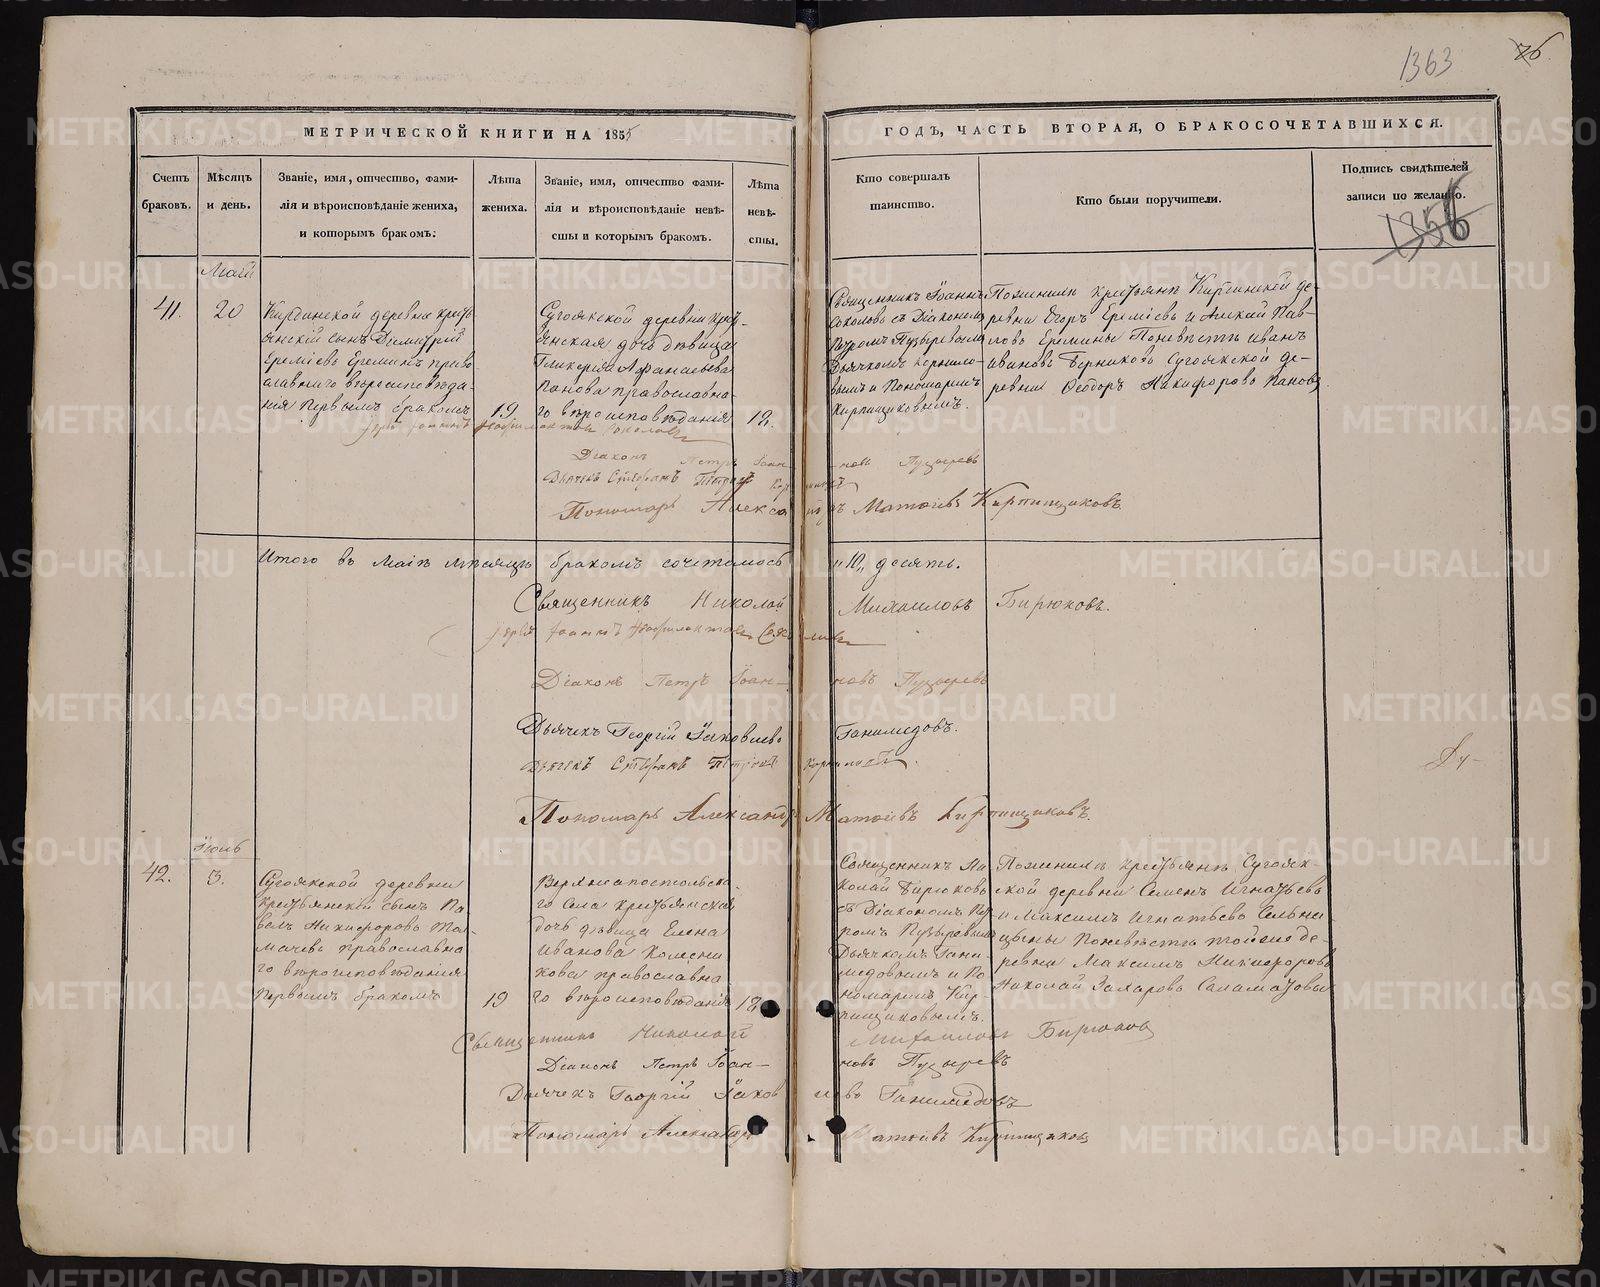 1363
76
МЕТРИЧЕСКОЙ КНИГИ НА 1855
ГОДЪ, ЧАСТЬ ВТОРАЯ, О БРАКОСОЧЕТАВШИХСЯ.
Счетъ браковъ.
Мѣсяцъ и день.
Званіе, имя, отчество, фами-
лія и вѣроисповѣданіе жениха,
и которымъ бракомъ:
Лѣта
жениха.
Званіе, имя, отчество фами-
лія и вѣроисповѣданіе невѣ-
сты и которымъ бракомъ.
Лѣта
невѣ-
сты.
Кто совершалъ
таинство.
Кто были поручители.
Подпись свидѣтелей
записи по желанію.
1356
Май
41.
20
Киргинской деревни кресть-
янскій сынъ Димитрій
Еремѣевъ Ереминъ право-
славнаго вѣроисповѣда-
нія первымъ бракомъ
19.
Сугоякской деревни крес-
тьянская дочь дѣвица
Гликерія Афанасьева
Панова православна-
го вѣроисповѣданія
18.
Священникъ Іоаннъ
Соколовъ съ Діакономъ
Петромъ Пузыревымъ
Дьячкомъ Корнило-
вымъ и Пономаремъ
Кирпищиковымъ.
По женихѣ крестьяне Киргинской де-
ревни Егоръ Еремѣевъ и Алексій Пав-
ловъ Еремины По невѣстѣ Иванъ
Ивановъ Берниковъ Сугоякской де-
ревни Ѳеодоръ Никифоровъ Пановъ
Іерей Іоаннъ Соколовъ
Діаконъ Петръ Іоан-новъ Пузыревъ
Дьячекъ Стефанъ Петровъ
Пономарь Александръ Матѳіевъ Кирпищиковъ
Итого въ Маіѣ мѣсяцѣ бракомъ сочеталось „10„ десять.
Священникъ Николай Михаиловъ Бирюковъ.
Іерей Іоаннъ Соколовъ
Діаконъ Петръ Іоан-новъ Пузыревъ
Дьячекъ Георгій Іаковлевъ Ганимедовъ.
Дьячекъ Стефанъ Петровъ Корниловъ.
Пономарь Александръ Матѳіевъ Кирпищиковъ.
Іюль
42.
3.
Сугоякской деревни
крестьянскій сынъ Па-
велъ Никифоровъ Тол-
мачевъ православна
го вѣроисповѣданія
первымъ бракомъ
19
Верхнеапостольска-
го Села крестьянская
дочь дѣвица Елена
Иванова Колесни
кова православна
го вѣроисповѣданія
18
Священникъ Ни-
колай Бирюковъ
съ Діакономъ Пет-
ромъ Пузыревымъ
Дьячкомъ Гани-
медовымъ и По
номаремъ Кир-
пищиковымъ.
По женихѣ крестьяне Сугояк-
ской деревни Семенъ Игнатьевъ
и Максимъ Игнатьевъ Сельни-
цыны По невѣстѣ тойже де-
ревни Максимъ Никифоровъ
Николай Захаровъ Саламатовы
Священникъ Николай Михаиловъ Бирюковъ
Діаконъ Петръ Іоан-новъ Пузыревъ
Дьячекъ Георгій Іаковлевъ Ганимедовъ
Пономарь Александръ Матѳіевъ Кирпищиковъ
METRIKI.GASO-URAL.RU